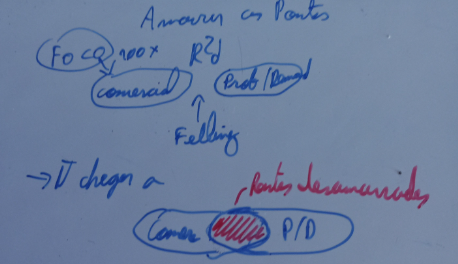 Amarrar as Pontas
Foco 100x R2d
comercial Prob/Demand
Felling
→ IT chegar a
Pontas desamarradas
Comerc P/D